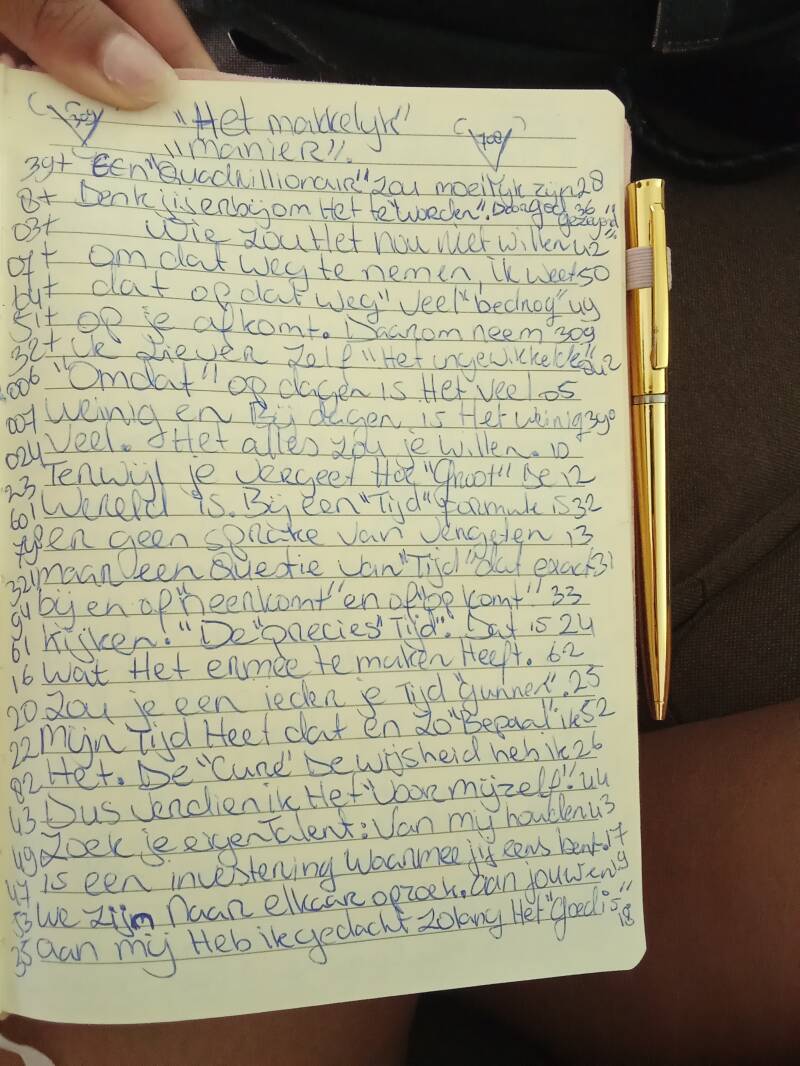 309 "Het makkelyk" 708
"manier".
39+ Een "Quadrillionair" zou moeilyk zijn 28
8+ Denk jij erbij om Het te "worden". Door god 36 gezegend"
03+ Wie zou Het nou niet willen 42
07+ om dat weg te nemen, ik weet 50
64+ dat op dat weg "veel" bedrog" 49
51+ op je afkomt. Daarom neem 309
32+ ik liever zelf "Het ingewikkelde"
006 "Omdat" op dagen is Het veel 05
007 weinig en Bij dagen is Het weinig 390
024 veel. Het alles zou je willen. 10
23 Terwijl je vergeet Hoe "Groot" De 12
601 Wereld is. Bij een "Tijd" formule is 32
er geen sprake van vergeten 13
321 maar een Questie van "Tijd" dat exact 31
94 bij en of "neerkomt" en of "op komt". 33
61 kijken." De "precies" Tijd". Dat is 24
16 wat Het ermee te maken Heeft. 62
20 Zou je een ieder je Tijd "gunnen". 25
22 Mijn Tijd Heet dat en zo "Bepaal" ik 52
82 Het. De "Cure" De wijsheid heb ik 26
43 Dus verdien ik Het "Voor mijzelf". 44
49 Zoek je eigen Talent: Van mij houden 43
47 is een investering waarmee jij eens bent. 17
53 We zijn naar elkaar opzoek. aan jouwen 19
35 aan mij Heb ik gedacht zolang Het "goed is" 18